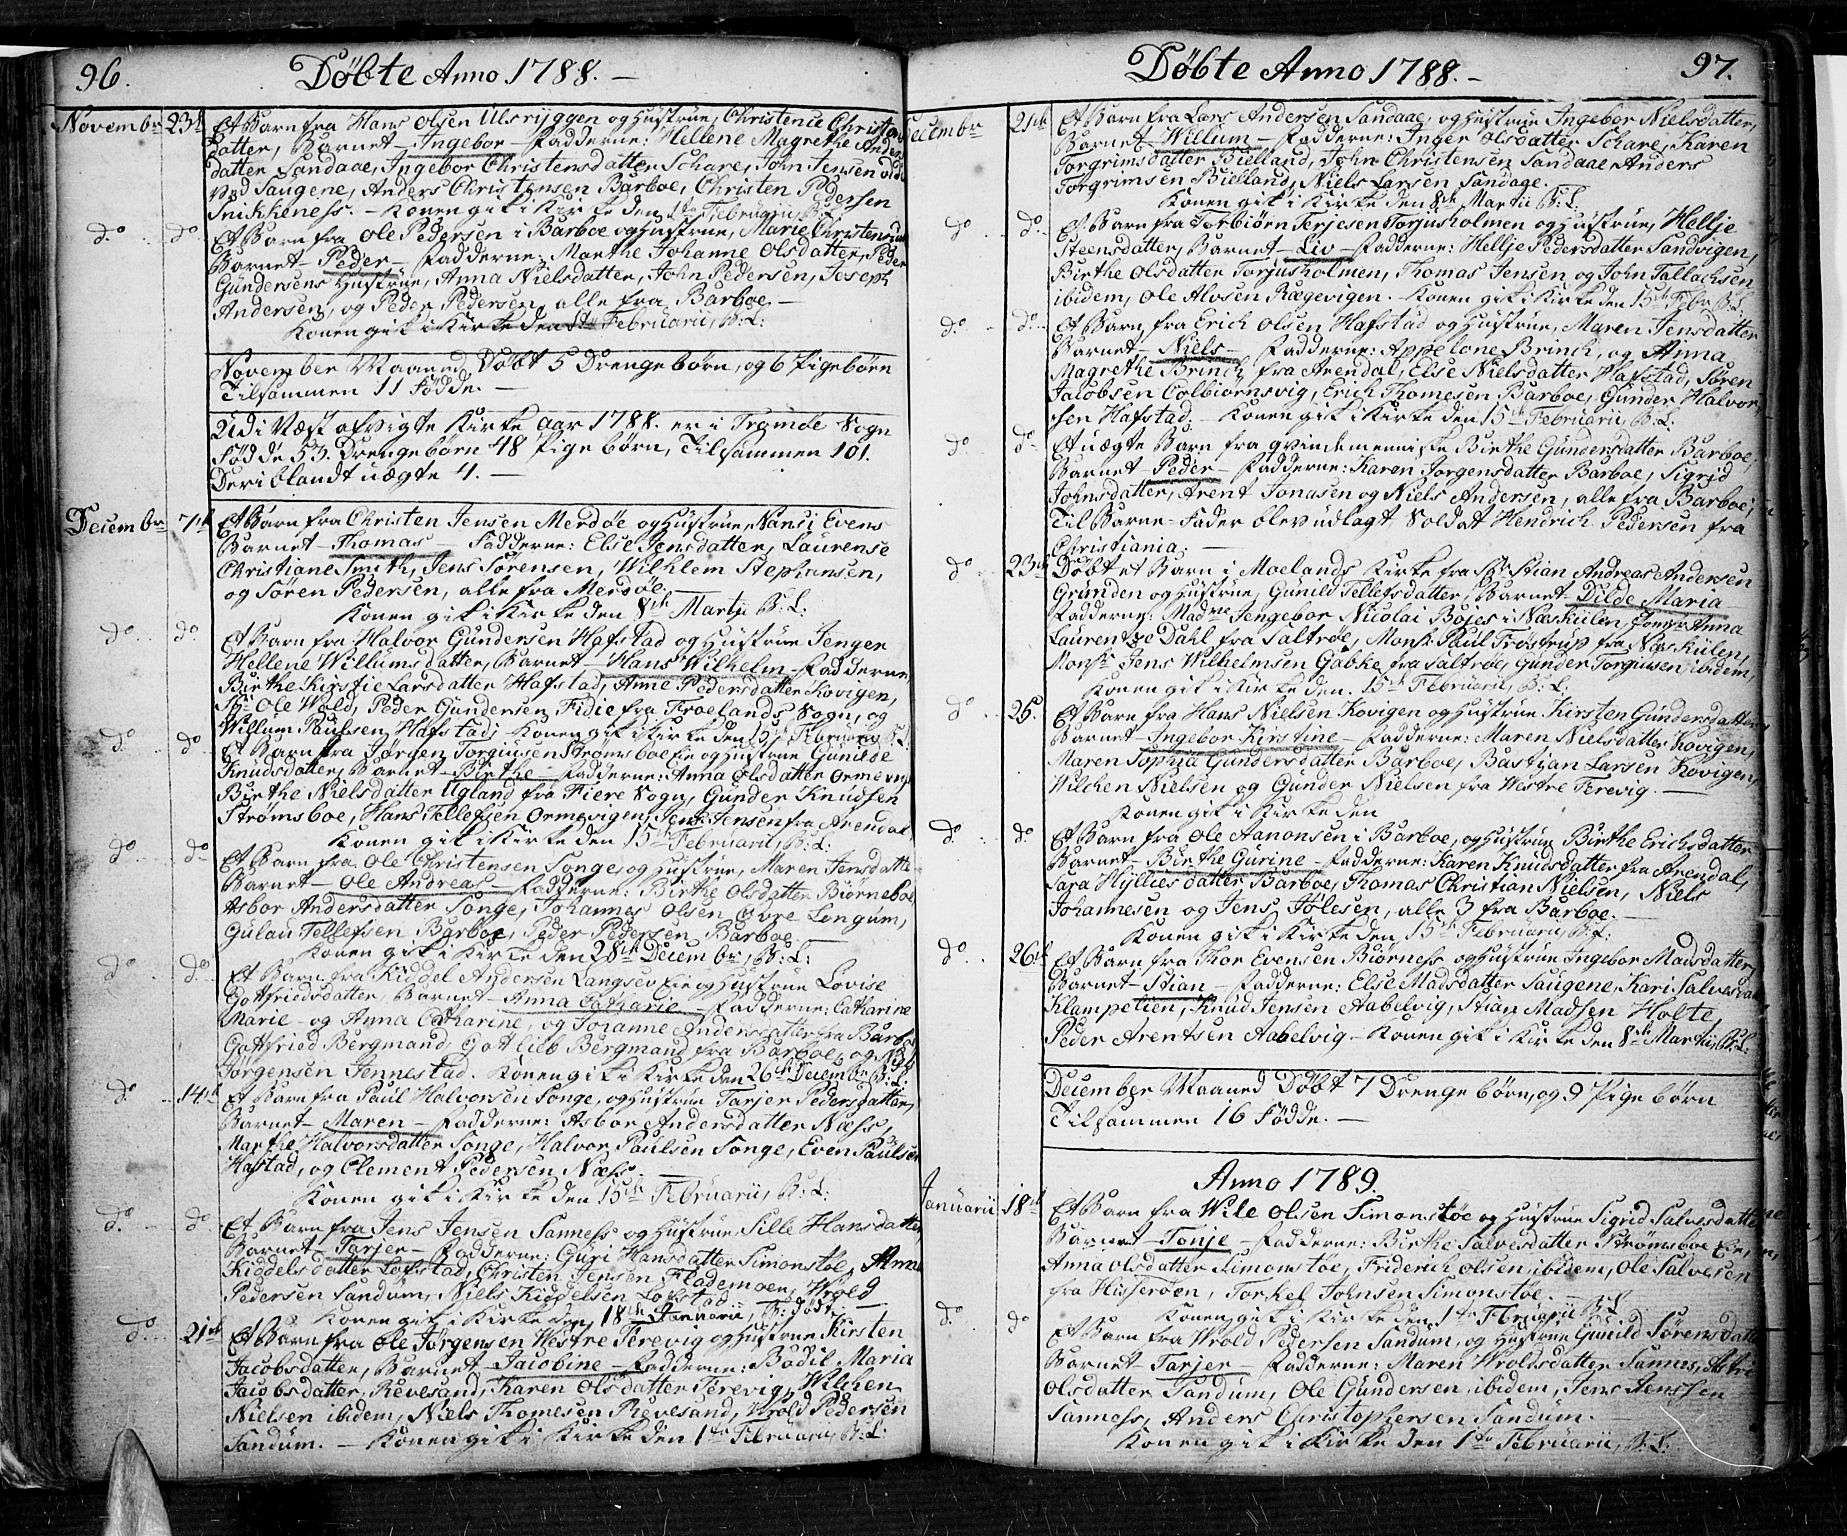 96.
Döbte Anno 1788. —
Novembr 23de Et Barn fra Hans Olsen Ulsryggen og Hustrue, Christence Christens
datter, Barnet — Ingebor — Fadderne: Hellene Magrethe Anders
datter Sandaae, Ingebor Christensdatter Schare, John Jensen
ved Saugene, Anders Christensen Barboe, Christen Pedersen
Snikkeness. — Konen gik i Kirke den 1te Februarii, B: L:
do do Et Barn fra Ole Pedersen i Barboe og Hustrue, Marie Christensdatter
Barnet — Peder — Fadderne: Marthe Johanne Olsdatter, Peder
Gundersens Hustrue, Anna Nielsdatter, John Pedersen, Joseph
Andersen, og Peder Pedersen, alle fra Barboe. —
Konen gik i Kirke den 8de Februarii, B: L:
November Maaned Döbt 5 Drengebörn, og 6 Pigebörn
Tilsammen 11 Födde. —
Udi Næst afvigte Kirke Aar 1788. er i Tromöe Sogn
Född 53. Drengebörn 48 Pigebörn, Tilsammen 101.
Deriblandt uægte 4. —
Decembr 7de Et Barn fra Christen Jensen Merdöe og Hustrue, Nanci Evens
Barnet — Thomas — Fadderne: Else Jensdatter, Laurense
Christiane Smith, Jens Sörensen, Wilhlem Stephansen,
og Sören Pedersen, alle fra Merdöe.
Konen gik i Kirke den 8de Martii B: L:
do do Et Barn fra Halvor Gundersen Hafstad og Hustrue Jenger
Hellene Willumsdatter, Barnet — Hans Wilhelm — Fadderne
Birthe Kirstie Larsdatter Hafstad, Anne Pedersdatter Kovigen,
Sr Ole Wold, Peder Gundersen Fidie fra Froelands Sogn, og
Willum Paulsen Hafstad; Konen gik i Kirke den 15de Februarii B: L:
do do Et Barn fra Jörgen Torgiusen Strömsboe Eie og Hustrue Gunilde
Knudsdatter, Barnet — Birthe — Fadderne: Anna Olsdatter Ormevigen
Birthe Nielsdatter Ugland fra Fiere Sogn, Gunder Knudsen
Strömsboe, Hans Tellefsen Ormevigen, Jens Jensen fra Arendal
Konen gik i Kirke den 15de Februarii, B: L:
do do Et Barn fra Ole Christensen Songe, og Hustrue, Maren Jensdatter
Barnet — Ole Andreas — Fadderne: Birthe Olsdatter Biörneboe,
Asbor Andersdatter Songe, Johannes Olsen Övre Lengum,
Gulau Tellefsen Barboe, Peder Pedersen Barboe
Konen gik i Kirke den 28de Decembr, B: L:
do do Et Barn fra Kiddel Andersen Langsev Eie og Hustrue Lovise
Gotfriedsdatter, Barnet — Anna Catharie — Fadderne: Catharine
Marie — og Anna Catharine, og Johanne Andersdatter fra Barboe
Gotfried Bergmand, Gotlieb Bergmand fra Barboe, og Niels
Jörgensen Jennestad. Konen gik i Kirke den 26de Decembr B: L:
do 14de Et Barn fra Paul Halvorsen Songe, og Hustrue Tarjer Pedersdatter,
Barnet — Maren — Fadderne: Asbor Andersdatter Næss,
Marthe Halvorsdatter Songe, Halvor Paulsen Songe, Even Paulsen
Hafstad, og Clement Pedersen Næss. —
Konen gik i Kirke den 15de Februarii, B: L:
do do Et Barn fra Jens Jensen Sanness og Hustrue Sille Hansdatter
Barnet — Tarjer — Fadderne: Guri Hansdatter Simonstöe, Anna
Kiddelsdatter Lofstad, Christen Jensen Flademoen, Wrold
Pedersen Sandum, Niels Kiddelsen Lofstad
Konen gik i Kirke den 18de Januarii, B: död:
do 21de Et Barn fra Ole Jörgensen Westre Terevig og Hustrue Kirsten
Jacobsdatter, Barnet — Jacobine — Fadderne: Bodil Maria
Jacobsdatter, Revesand, Karen Olsdatter Terevig, Wilchen
Nielsen ibidem, Niels Thomesen Revesand, Wrold Pedersen
Sandum. — Konen gik i Kirke den 1te Februarii, B: L:
Döbte Anno 1788. —
97.
Decembr 21de Et Barn fra Lars Andersen Sandaae, og Hustrue Ingebor Nielsdatter,
Barnet — Willum — Fadderne: Anger Olsdatter Schare, Karen
Torgrimsdatter Bielland, John Christensen Sandaae, Anders
Torgrimsen Bielland, Niels Larsen Sandage.
Konen gik i Kirke den 8de Martii B: L:
do do Et Barn fra Torbiörn Terjesen Torjusholmen og Hustrue, Hellje
Steensdatter, Barnet — Liv — Fadderne: Hellje Pedersdatter Sandvigen,
Birthe Olsdatter Torjusholmen, Thomas Jensen og John Tallachsen
ibidem, Ole Alvsen Rægevigen. Konen gik i Kirke den 15de Febr. B: L:
do do Et Barn fra Erich Olsen Hafstad og Hustrue, Maren Jensdatter
Barnet — Niels — Fadderne: Appelone Brinch, og Anna
Magrethe Brinch fra Arendal, Else Nielsdatter Hafstad, Sören
Jacobsen Colbiörnsvig, Erich Thomesen Barboe, Gunder Halvor
sen Hafstad. Konen gik i Kirke den 15de Februarii, B: L:
do do Et uægte Barn fra Qvindemenniske Birthe Gundersdatter Barboe,
Barnet — Peder — Fadderne: Karen Jorgensdatter Barboe, Sigrid
Johnsdatter, Arent Jonasen og Niels Andersen, alle fra Barboe;
Til Barne-Fader blev udlagt Soldat Hendrich Pedersen fra
Christiania. —
do 23de Döbt et Barn i Moelands Kirke fra Sr. Stian Andreas Andersen
Grunden og Hustrue, Gunild Tellefsdatter, Barnet — Dilde Maria
Fadderne: Madme Jengebor Nicolai Böjes i Næskilen Jomfr Anna
Laurentze Dahl fra Saltröe, Monsr Paul Fröstrup fra Næskilen,
Monsr Jens Wilhelmsen Gabke fra Saltröe, Gunder Torgiusen ibidem,
Konen gik i Kirke den. 15de Februarii, B: L:
do 25. Et Barn fra Hans Nielsen Kovigen og Hustrue Kirsten Gundersdatter,
Barnet — Ingebor Kirstine — Fadderne: Maren Nielsdatter Kovigen,
Maren Sophia Gundersdatter Barboe, Bastian Larsen Kovigen,
Wilchen Nielsen og Gunder Nielsen fra Westre Terevig. —
Konen gik i Kirke den
do do Et Barn fra Ole Aanonsen i Barboe, og Hustrue Birthe Erichsdatter
Barnet — Birthe Gurine — Fadderne: Karen Knudsdatter fra Arendal,
Sara Hylliesdatter Barboe, Thomas Christian Nielsen, Niels
Johannesen og Jens Jölesen, alle 3 fra Barboe. —
Konen gik i Kirke den 15de Februarii, B: L:
do 26de Et Barn fra Thor Evensen Biörness og Hustrue Ingebor Madsdatter,
Barnet — Stian — Fadderne: Else Madsdatter Saugene, Kari Salvesdatter
Klampelien, Knud Jensen Aabelvig, Stian Madsen Holte,
Peder Arentsen Aabelvig — Konen gik i Kirke den 8de Martii, B: L:
December Maaned Döbt 7 Drengebörn, og 9 Pigebörn
Tilsammen 16 Födde. —
Anno 1789.
Januarii 18de Et Barn fra Wile Olsen Simonstöe og Hustrue Sigrid Salvesdatter
Barnet — Tonje — Fadderne: Birthe Salvesdatter Strömsboe Eie,
Anna Olsdatter Simonstöe, Friderich Olsen ibidem, Ole Salvesen
fra Hisseröen, Torkel Johnsen Simonstöe. —
Konen gik i Kirke den 1te Februarii B: L:
do do Et Barn fra Wrold Pedersen Sandum, og Hustrue Gunild Sörensdatter
Barnet — Tarjer — Fadderne: Maren Wroldsdatter Sannes, Astri
Olsdatter Sandum, Ole Gundersen ibidem, Jens Jenssen
Sanness, Anders Christophersen Sandum.
Konen gik i Kirke den 1te Februarii, B: L: